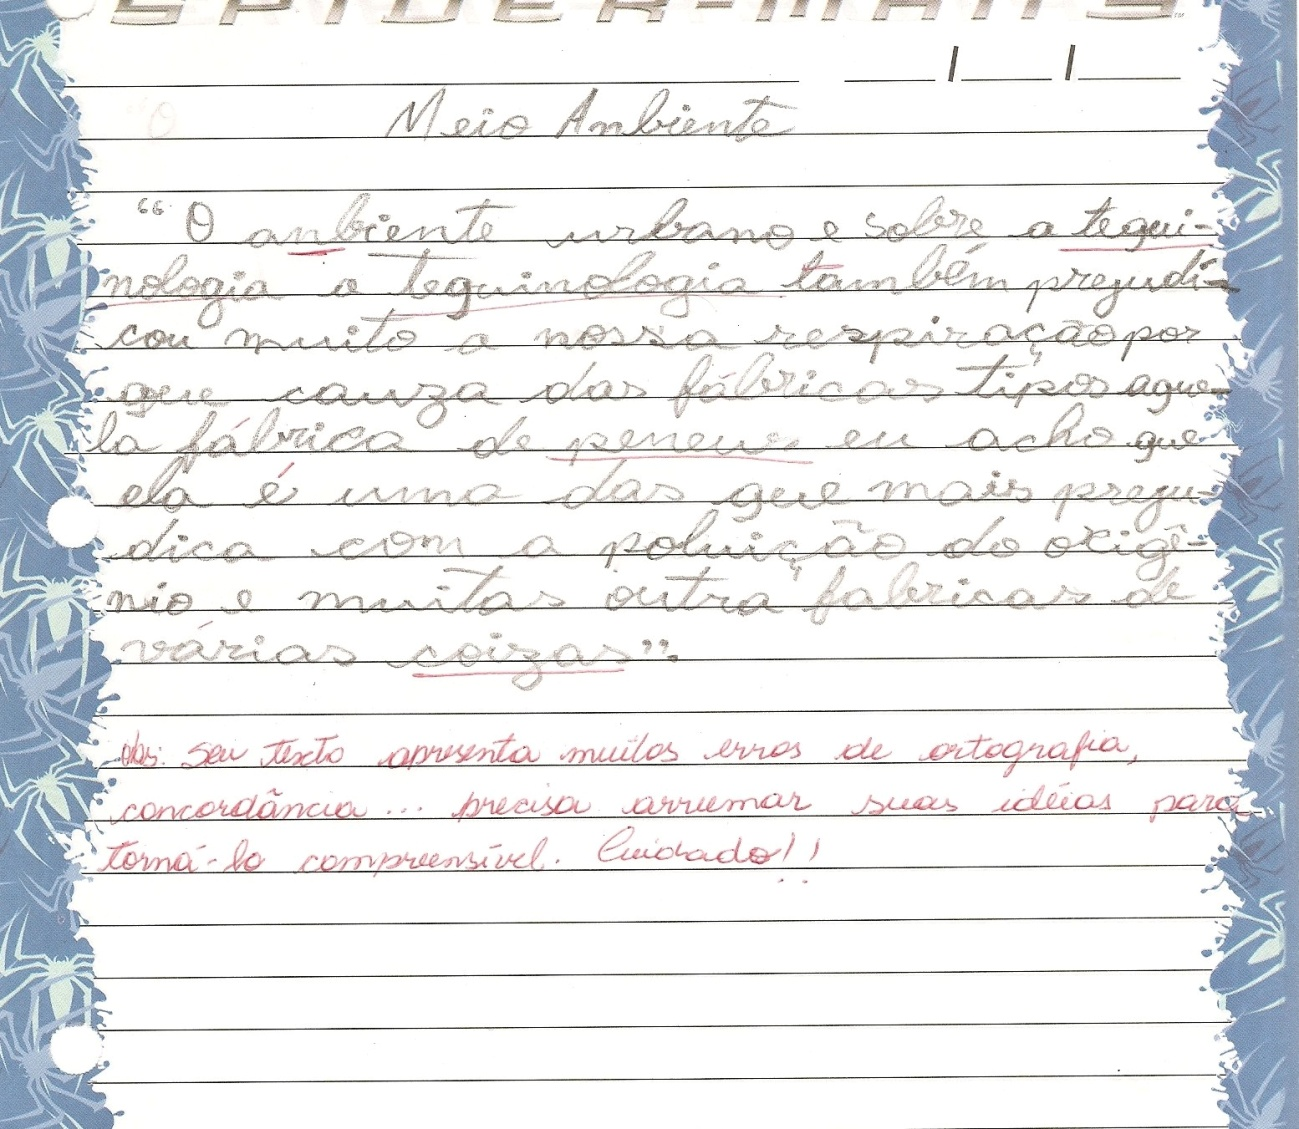 SPIDER-MAN 3
Meio Anbiente
“O anbiente urbano e sobre a tegui-
nologia a teguinologia também prejudi-
cou muito a nossa respiração por
que cauza das fábricas tipos aque-
la fábrica de peneus eu acho que
ela é uma das que mais preju-
dica com a poluição do oxigê-
nio e muitas outra fabricas de
várias coizas”.
obs: Seu texto apresenta muitos erros de ortografia,
concordância... precisa arrumar suas idéias para
torná-lo compreensível. Cuidado!!